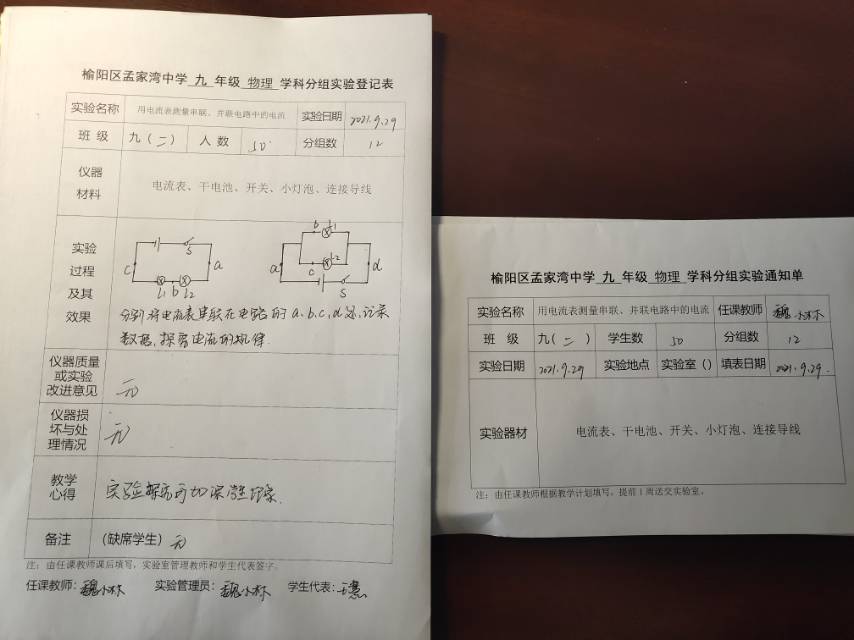 榆阳区孟家湾中学 九 年级 物理 学科分组实验登记表
实验名称 用电流表测量串联、并联电路中的电流 实验日期 2021.9.29
班 级 九（二） 人 数 50 分组数 12
仪器
材料
电流表、干电池、开关、小灯泡、连接导线
实验
过程
及其
效果
S
c a
L1 b L2
b L1
a L2 d
c
S
分别将电流表串联在电路的a、b、c、d处,记录
数据,探究电流的规律.
仪器质量
或实验
改进意见
无
仪器损
坏与处
理情况
无
教学
心得
实验探究可加深 记录.
备注 （缺席学生）无
注：由任课教师课后填写，实验室管理教师和学生代表签字。
任课教师：魏小林 实验管理员：魏小林 学生代表：
榆阳区孟家湾中学 九 年级 物理 学科分组实验通知单
实验名称 用电流表测量串联、并联电路中的电流 任课教师 魏小林
班 级 九（二） 学生数 50 分组数 12
实验日期 2021.9.29 实验地点 实验室（） 填表日期 2021.9.29.
实验器材 电流表、干电池、开关、小灯泡、连接导线
注：由任课教师根据教学计划填写，提前1周送交实验室。